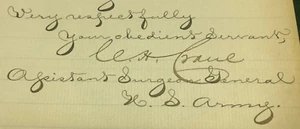 Very respectfully
Your obedient Servant,
C. H. Crane
Assistant Surgeon General
U. S. Army.